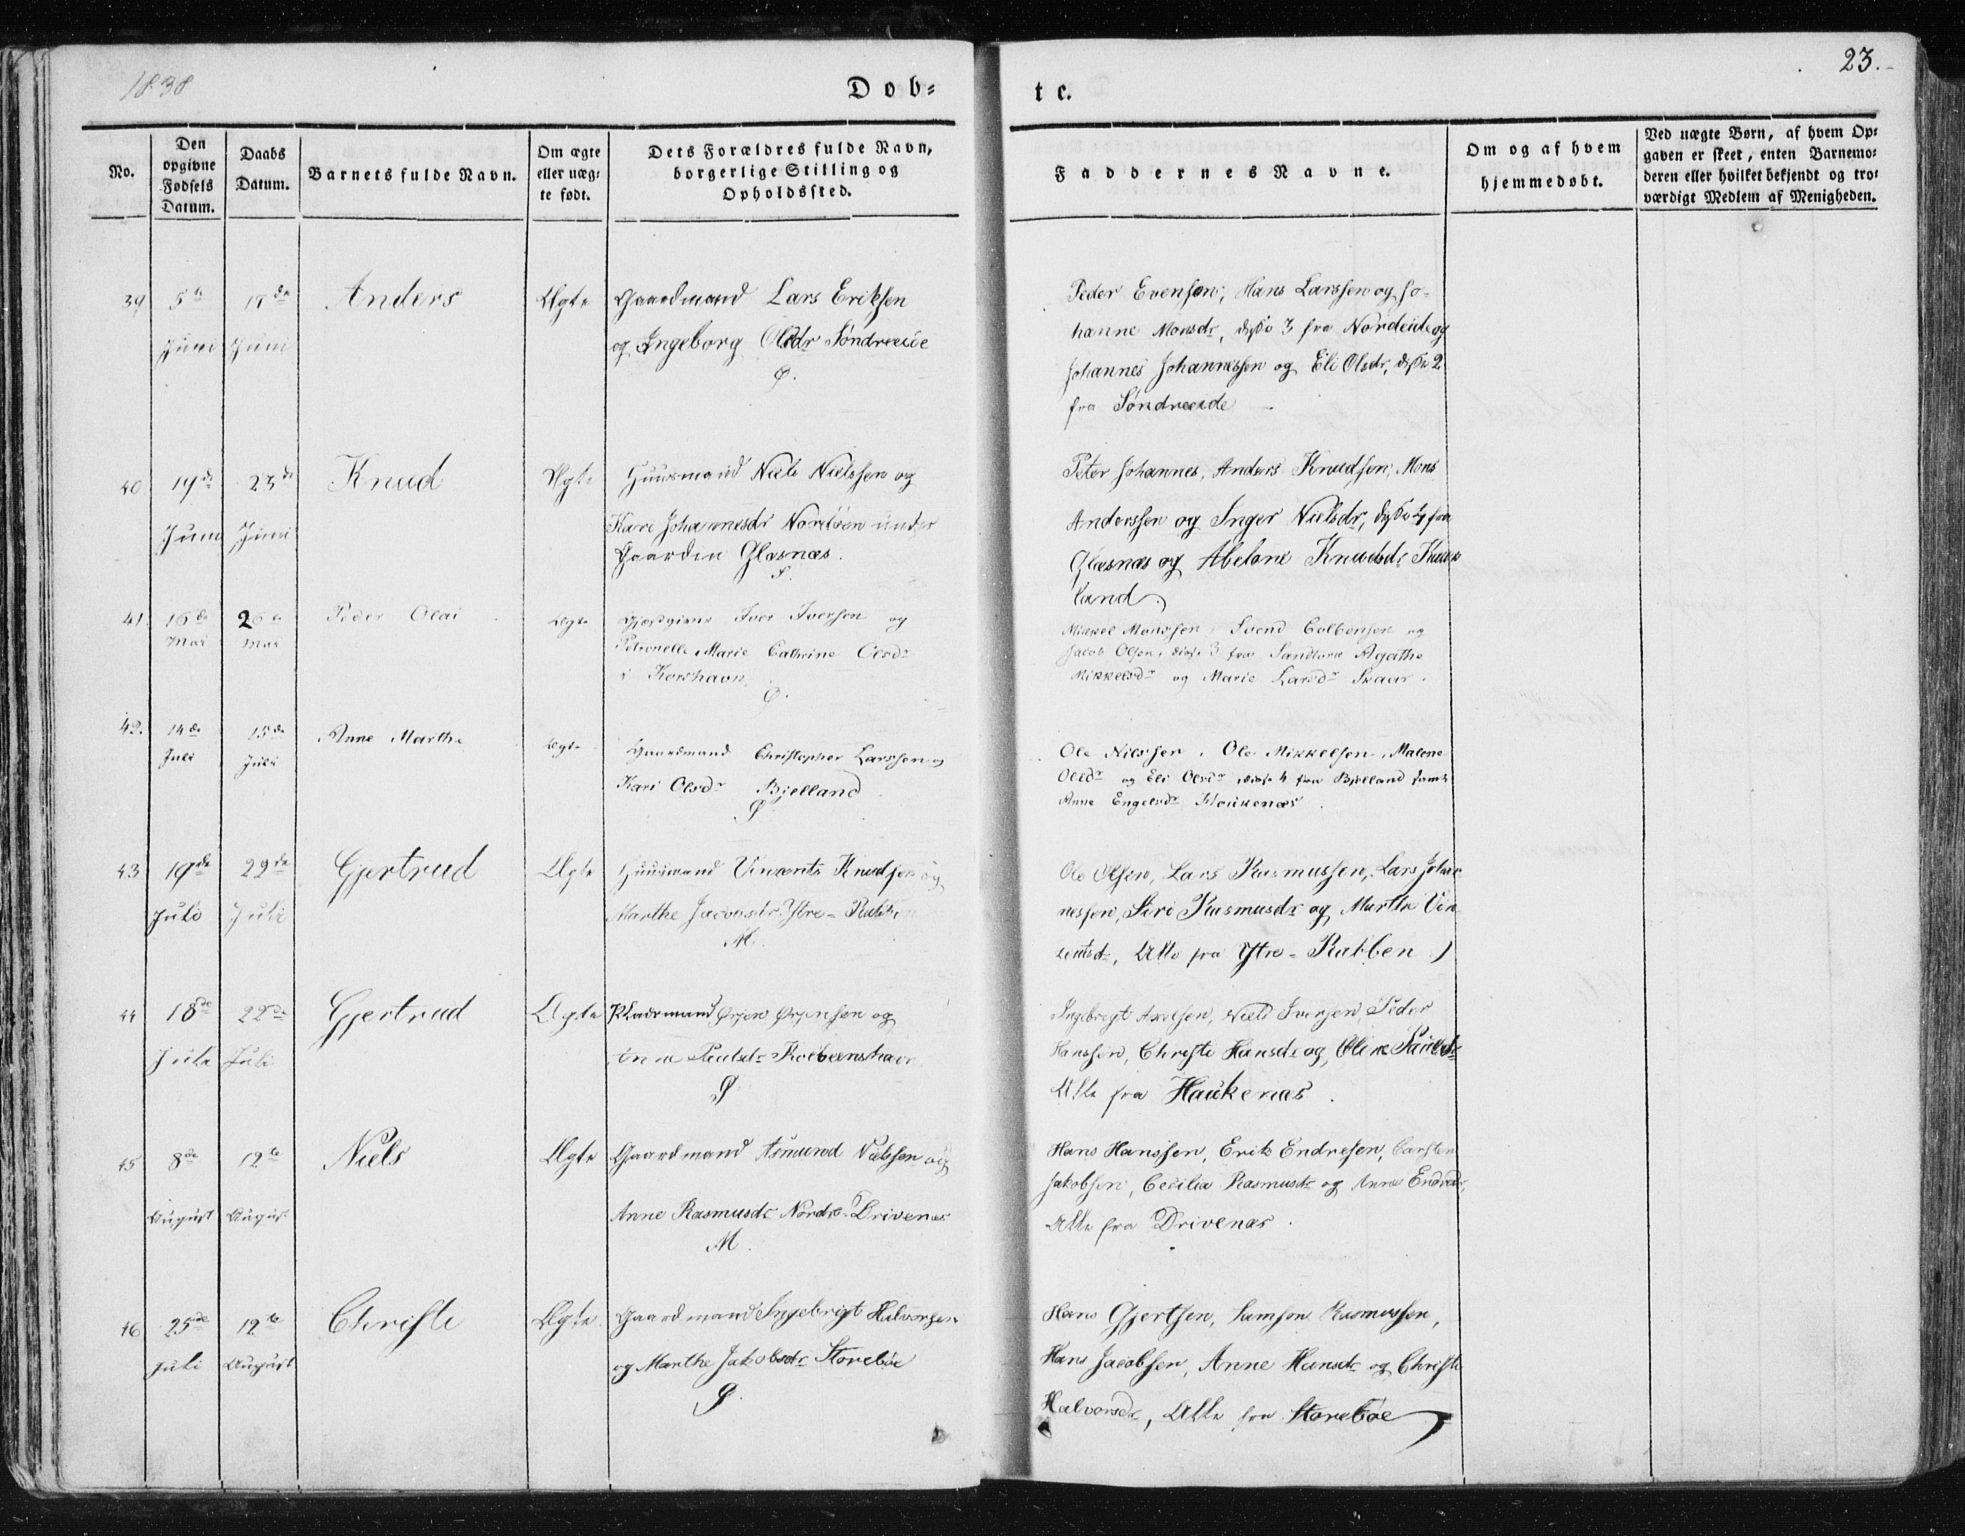 1838
Døb-
te.
23.
No.
Den opgivne Fødsels Datum.
Daabs Datum.
Barnets fulde Navn.
Om ægte eller uægte født.
Dets Forældres fulde Navn, borgerlige Stilling og Opholdssted.
Faddernes Navne.
Om og af hvem hjemmedøbt.
Ved uægte Børn, af hvem Op-
gaven er skeet, enten Barnemo-
deren eller hvilket bekjendt og tro-
værdigt Medlem af Menigheden.
39 5te Juni 17de Juni Anders Ægte
Gaardmand Lars Eriksen
og Ingeborg Olsdr Søndreeide
Ø.
Peder Evensen, Hans Larssen og Jo-
hanne Monsdr, disse 3 fra Nordeide og
Johannes Johannessen og Eli Olsdr, disse 2
fra Søndreeide
40 19de Juni 23de Juni Knud Ægte
Huusmand Niels Nielssen og
Kari Johannesdr under
Gaarden Glæsnæs.
Peter Johannes, Anders Knudsen, Mons
Anderssen og Inger Nielsdr, disse 4 fra
Glæsnæs og Abelone Knudsdr
land
41 16de Mai 26de Mai Peder Olai Ægte
Gjæstgiver Iver Iversen og
Petronelle Marie Cathrine Olsdr
i Korshavn
Ø.
Mikkel Monssen, Svend Colbensen og
Jacob Olsen, disse 3 fra Sandtorv Agathe
Mikkelsdr og Marie Larsdr Skaar.
42. 14de Juli 15de Juli Anne Marthe Ægte
Gaardmand Christopher Larssen og
Kari Olsdr Bielland
Ø
Ole Nilssen, Ole Mikkelsen, Malene
Olsdr og Eli Olsdr, disse 4 fra Bjelland samt
Anne Engelsdr Houkenæs.
43 19de Juli 22de Juli Gjertrud Ægte
Huusmand Vincents Knudsen og
Marthe Jacobsdr Ytre-Rabben
M.
Ole Olsen, Lars Rasmussen, Lars Johan-
nessen, Siri Rasmusdr og Marthe Vin-
centsdr, Alle fra Ytre-Rabben.
44 18de Juli 22de Juli Gjertrud Ægte
Pladsmand Ørjen Ørjensen og
Anna Paulsdr Kolbeenshavn
Ø
Ingebregt Axelsen, Niels Iversen, Peder
Hanssen, Christi Hansdr og Oline Paulsdr
Alle fra Haukenæs.
45 8de August 12te August Niels Ægte
Gaardmand Asmund Nielsen og
Anne Rasmusdr Nordre-Drivenæs
M.
Hans Hanssen, Erik Endresen, Carsten
Jakobsen, Cecilia Rasmusdr og Anne Endresdr,
Alle fra Drivenæs.
46 25de Juli 12te August Christi Ægte.
Gaardmand Ingebrigt Halvorsen
og Marthe Jakobsdr Storebøe
Ø.
Hans Gjertsen, Samson Rasmussen,
Hans Jacobsen, Anne Hansdr og Christi
Halvorsdr, Alle fra Storebøe